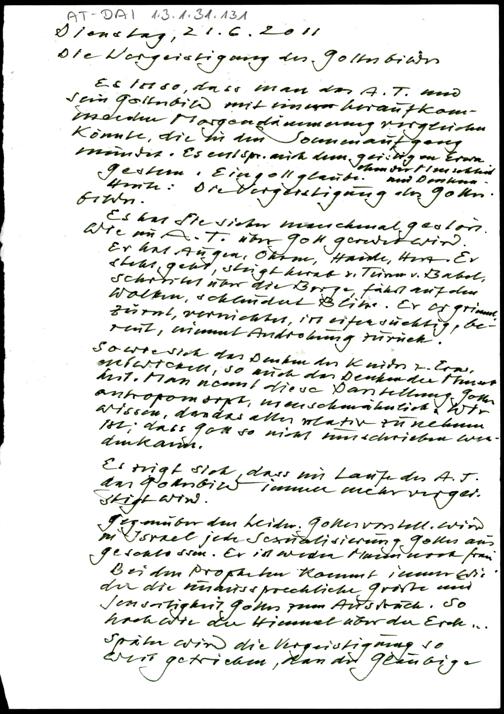 AT-DAI 1.3.1.31.131
Dienstag, 21.6.2011
Die Vergeistigung des Gottesbildes
Es ist so, dass man das A.T. und
sein Gottesbild mit einer heraufkom-
menden Morgendämmerung vergleichen
könnte, die in den Sonnenaufgang
mündet. Es entspr. auch dem geistigen Erwa
der Menschheit
gestern. Eingottglaube. und Denken
Heute: Die Vergeistigung des Gottes-
bildes.
Es hat Sie sicher manchmal gestört,
wie im A.T. über Gott geredet wird.
Er hat Augen, Ohren, Hände, Herz. Er
steht, geht, steigt herab z. Turm v. Babel,
schreitet über die Berge, fährt auf den
Wolken, schleudert Blitze. Er ergrimmt,
zürnt, vernichtet, ist eifersüchtig, be-
reut, nimmt Androhung zurück.
So wie sich das Denken des Kindes z. Erw.
entwickelt, so auch das Denken der Mensch
heit. Man nennt diese Darstellung Gottes
antropomorph, menschenähnlich. Wir
wissen, dass das alles relativ zu nehmen
ist, dass Gott so nicht umschrieben wer-
den kann.
Es zeigt sich, dass im Laufe des A.T.
das Gottesbild immer mehr vergei-
stigt wird.
Gegenüber den heidn. Gottesvorstell. wird
in Israel jede Sexualisierung Gottes aus-
geschlossen. Er ist weder Mann noch Frau
Bei den Propheten kommt immer wie-
der die unaussprechliche Grösse und
Jenseitigkeit Gottes zum Ausdruck. So
hoch wie der Himmel über der Erde...
Später wird die Vergeistigung so
weit getrieben, dass der Gläubige